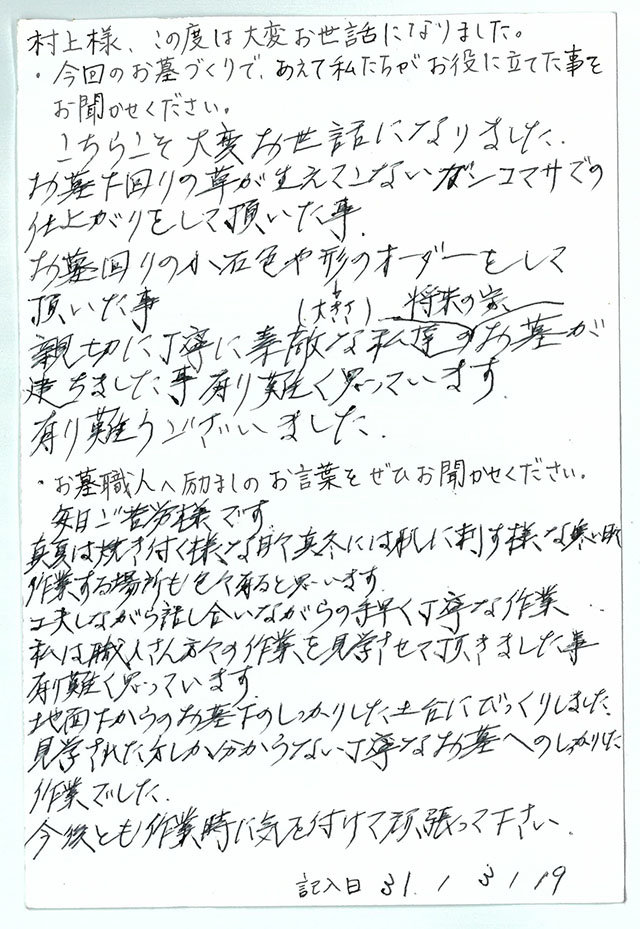 村上様、この度は大変お世話になりました。
・今回のお墓づくりで、あえて私たちがお役に立てた事を
お聞かせください。
こちらこそ大変お世話になりました.
お墓下回りの草が生えてこないガンコマサでの
仕上がりをして頂いた事.
お墓回りの小石色や形のオーダーをして
頂いた事 (大きさ) 将来の家
親切に丁寧に素敵な私達のお墓が
建ちました事有り難く思っています.
有り難うございました.
・お墓職人へ励ましのお言葉をぜひお聞かせください。
毎日ご苦労様です.
真夏は焼き付く様な日々真冬には肌に刺す様な寒い日々
作業する場所も色々有ると思います
工夫しながら話し合いながらの手早く丁寧な作業
私は職人さん方々の作業を見学させて頂きました事
有り難く思っています.
地面下からのお墓下のしっかりした土台にびっくりしました.
見学された方しか分からない丁寧なお墓へのしっかりした
作業でした.
今後とも作業時に気を付けて頑張って下さい.
記入日 31. 1